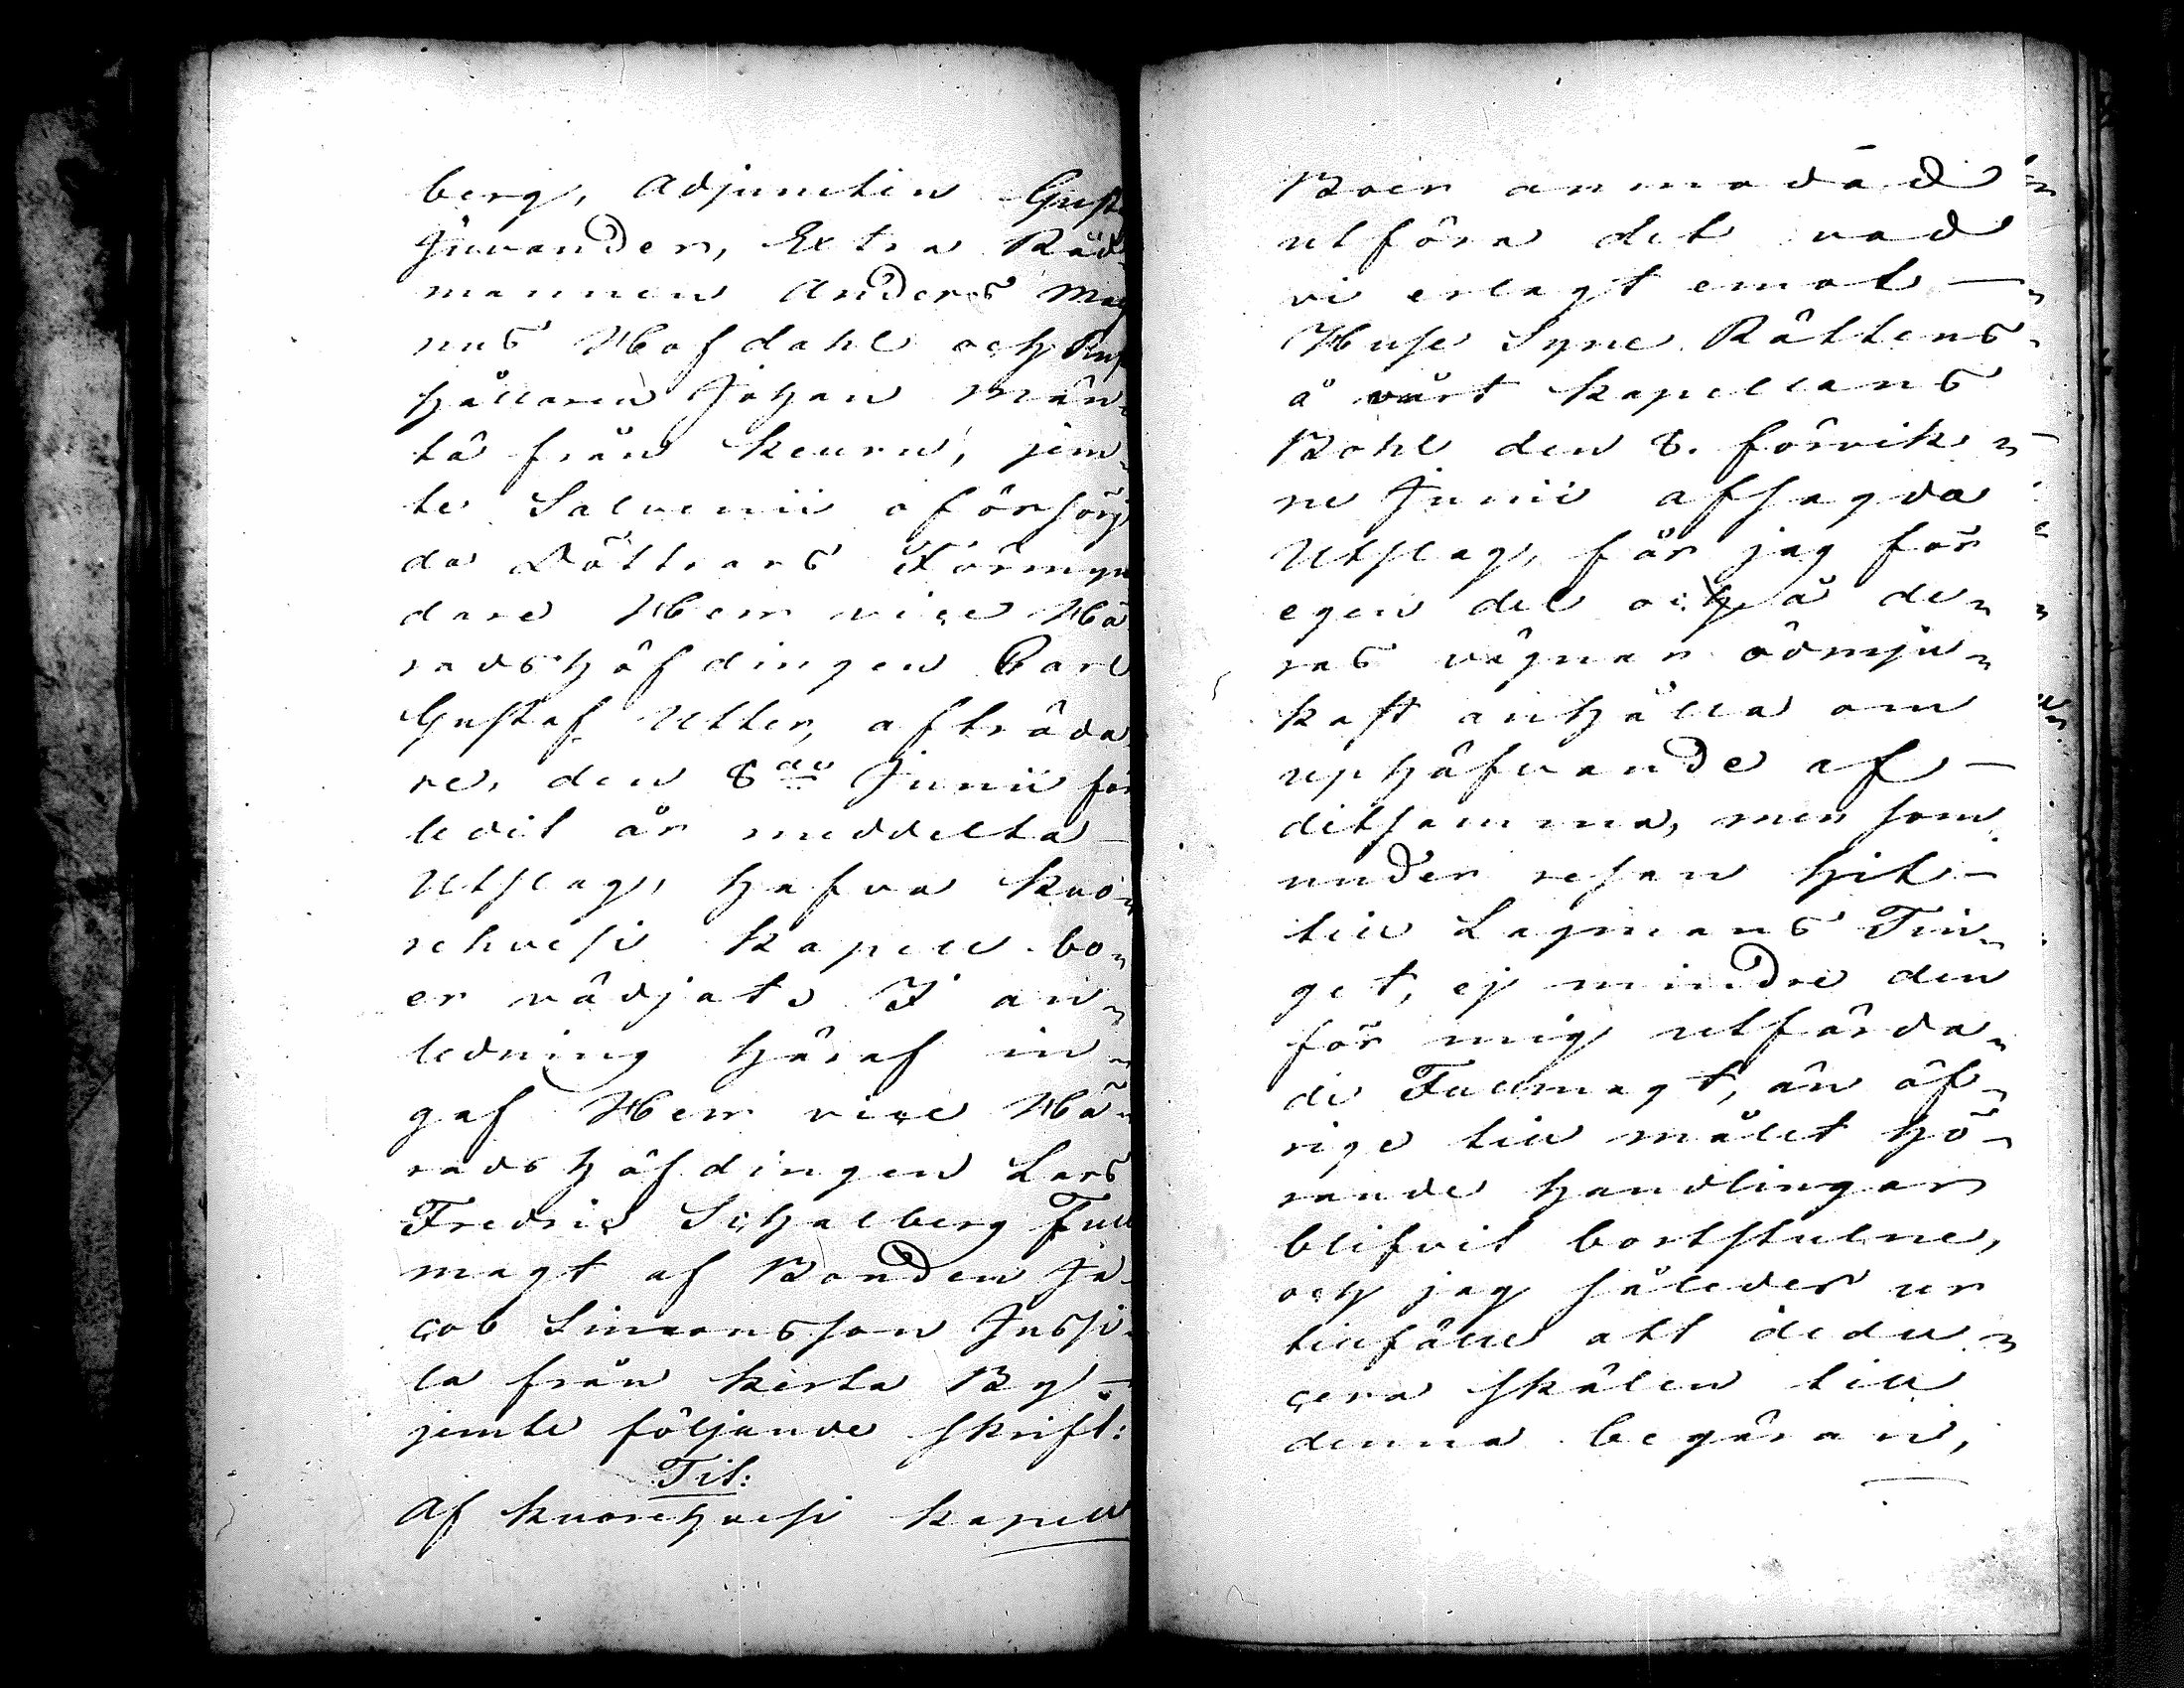 berg, Adjuncten Gusta
Juvander, Extra Råd¬
mannen Anders Mag
nus Hofdahl och Rust
hållaren Johan Män¬
tä från Keuru, jem¬
te Salvenii oförsörg
da Döttrars Förmyn
dare Herr vice Hä
radshöfdingen Carl
Gustaf Utter, afträda
re, den 8de Junii för
ledit år meddelta
Utslag, hafva Kuo¬
rehvesi Kapell bo¬
er vädjat. I an¬
ledning häraf in¬
gaf Herr vice Hä¬
radshöfdingen Lars
Fredric Schalberg Full
magt af Bonden Ja¬
cob Simonsson Jussi¬
la från Kerta By
jemte följande skrift:
Tit:
Af Kuorehvesi Kapell
Boer anmodad
utföra det vad
vi erlagt emot
Huse Syne Rättens
å vårt Kapellans
Bohl den 8. förvik¬
ne Junii afsagda
Utslag, får jag för
egen del och å de¬
ras vägnar ödmju¬
kast anhålla om
uphäfvande af
detsamma, men som
under resan hit
till Lagmans Tin¬
get, ej mindre den
för mig utfärda¬
de Fullmagt, än öf¬
rige till målet hö¬
rande handlingar
blifvit bortstulne,
och jag således ur
tillfälle att dedu¬
cera skälen till
denna begäran,